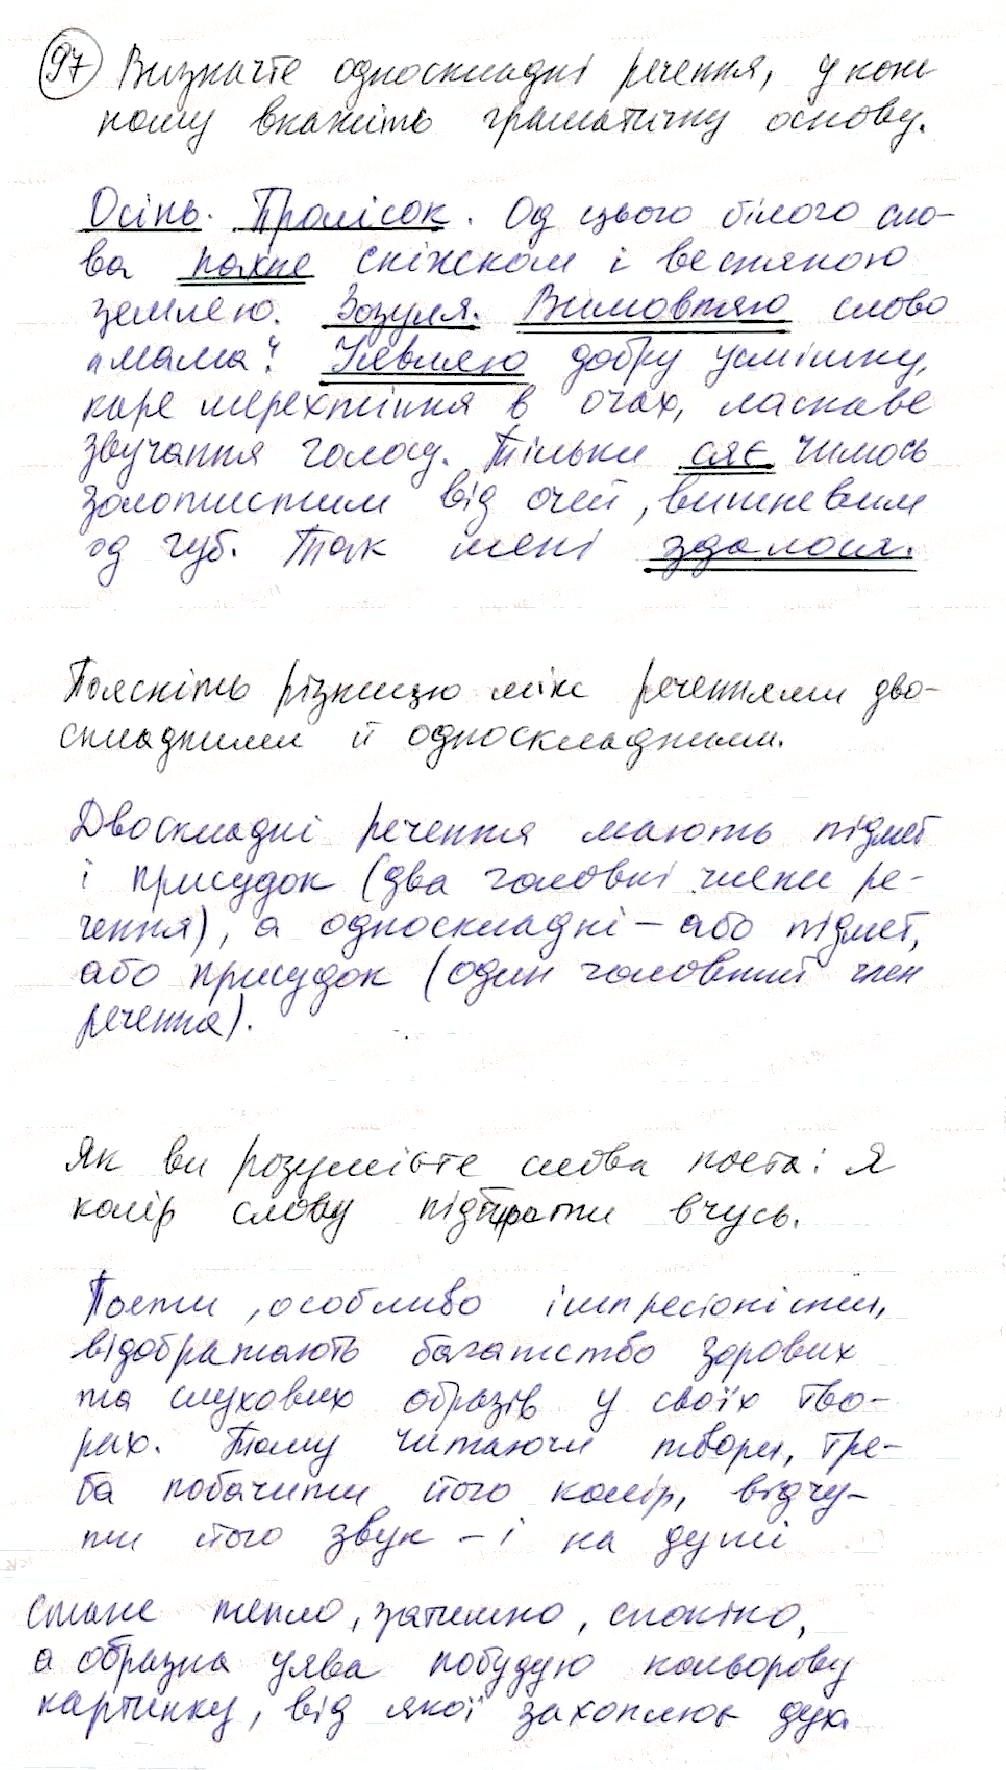 97 Визначте односкладні речення, у кож
ному вкажіть граматичну основу.
Осінь. Пролісок. Од цього білого сло-
ва пахне сніжком і весняною
землею. Зозуля. Вимовляю слово
"мама". Уявляю добру усмішку,
каре мерехтіння в очах, ласкаве
звучання голосу. Тільки сяє чимось
золотистим від очей, вишневим
од губ. Так мені здалося.
Поясніть різницю між реченнями дво-
складними й односкладними.
Двоскладні речення мають підмет
і присудок (два головні члени ре-
чення), а односкладні – або підмет,
або присудок (один головний член
речення).
Як ви розумієте слова поета: Я
колір слову підбирати вчусь.
Поети, особливо імпресіоністи,
відображають багатство зорових
та слухових образів у своїх тво-
рах. Тому читаючи твори, тре-
ба побачити його колір, відчу-
ти його звук – і на душі
стане тепло, затишно, спокійно,
а образна уява побудує кольорову
картинку, від якої захоплює дух.